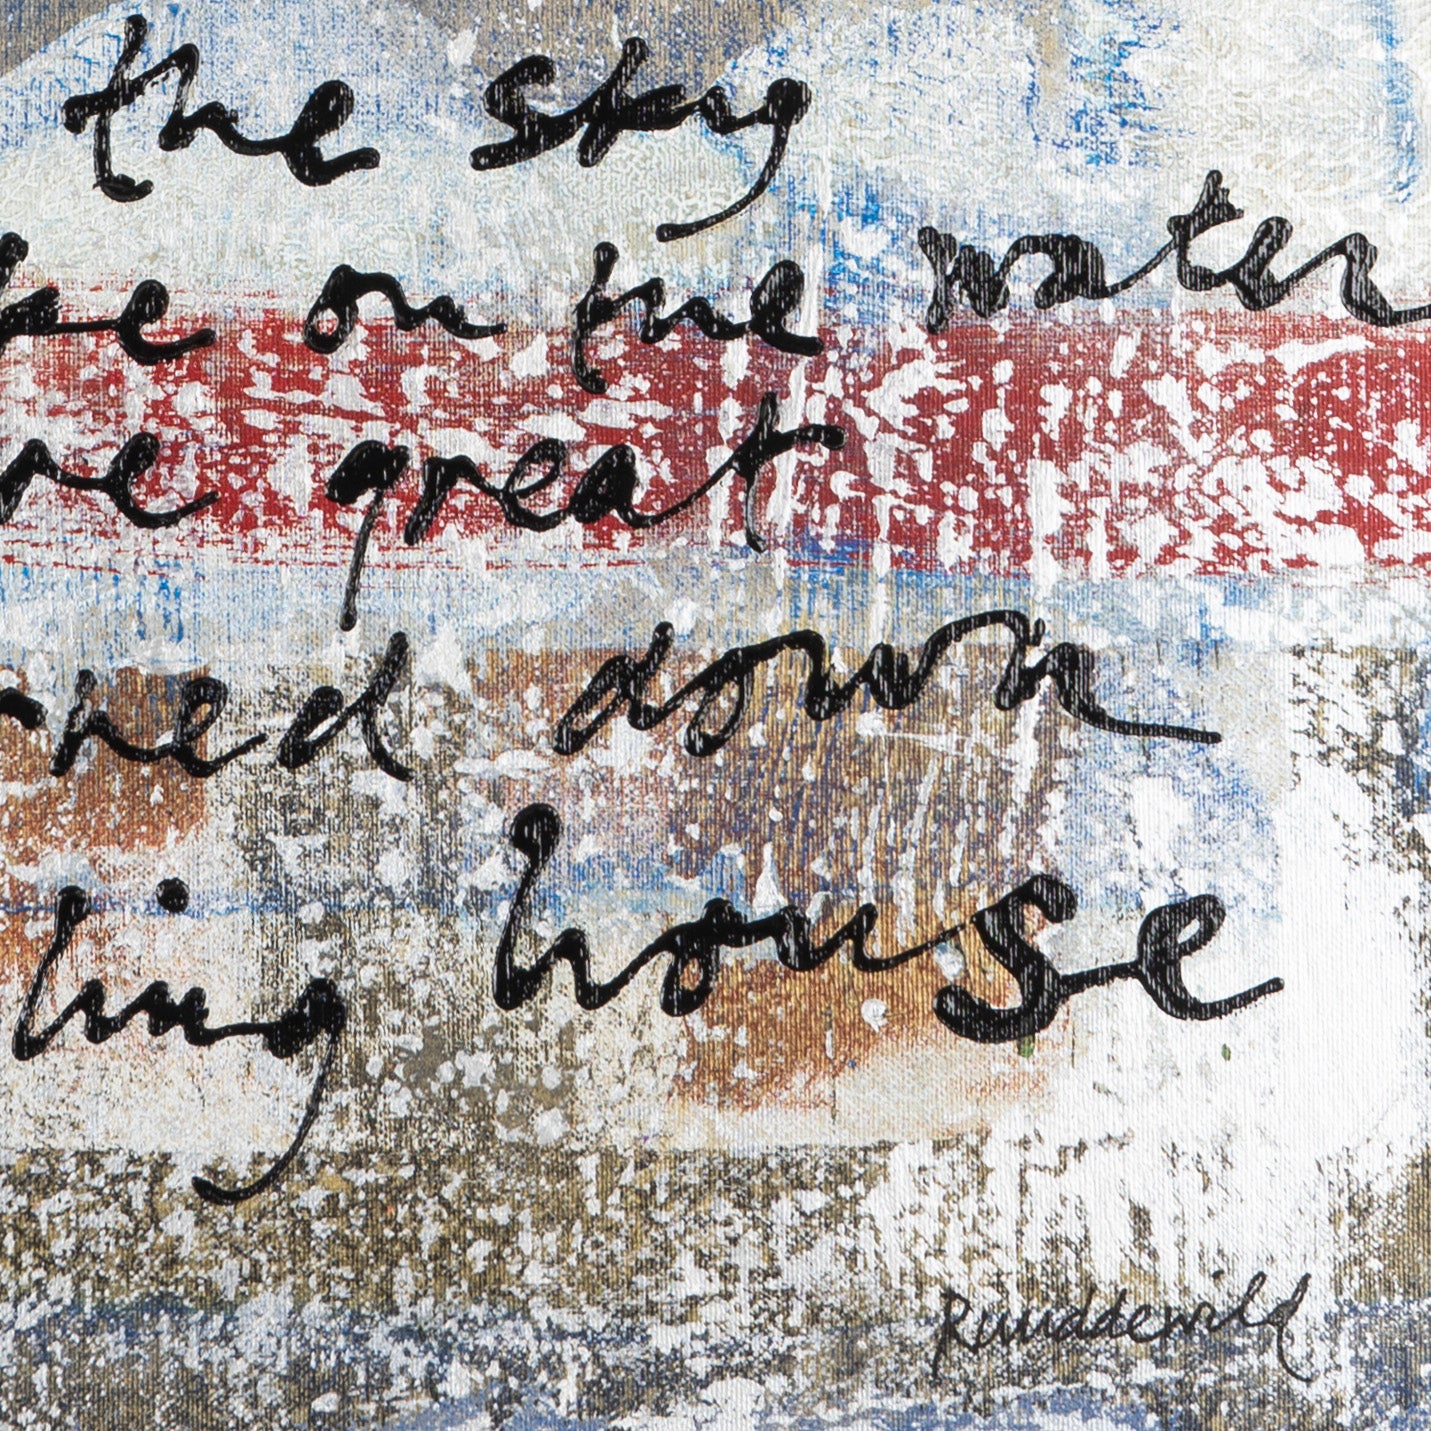 the sky
ke on the water
re great
rned down
ling house
Ruuddewild